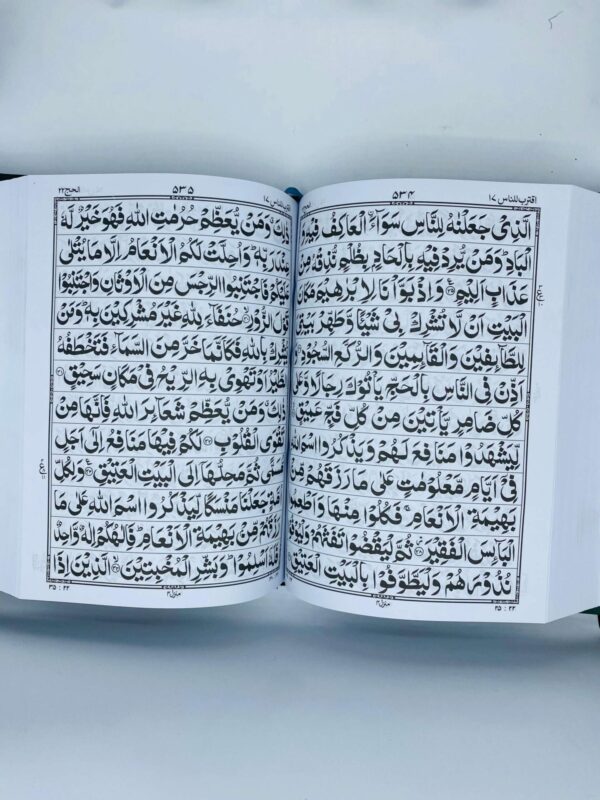 اقترب للناس ۱۷ ۵۳۴
الَّذِیْ جَعَلْنٰهُ لِلنَّاسِ سَوَآءَۨ الْعَاكِفُ فِیْهِ
الْبَادِ ؕ وَمَنْ یُّرِدْ فِیْهِ بِاِلْحَادٍۭ بِظُلْمٍ نُّذِقْهُ مِنْ
عَذَابٍ اَلِیْمٍ ۟۲۵ وَاِذْ بَوَّاْنَا لِاِبْرٰهِیْمَ مَكَانَ
الْبَیْتِ اَنْ لَّا تُشْرِكْ بِیْ شَیْـًٔا وَّطَهِّرْ بَیْتِیَ
لِلطَّآئِفِیْنَ وَالْقَآئِمِیْنَ وَالرُّكَّعِ السُّجُوْدِ ۟۲۶
اَذِّنْ فِی النَّاسِ بِالْحَجِّ یَاْتُوْكَ رِجَالًا وَّعَلٰی
كُلِّ ضَامِرٍ یَّاْتِیْنَ مِنْ كُلِّ فَجٍّ عَمِیْقٍ
لِّیَشْهَدُوْا مَنَافِعَ لَهُمْ وَیَذْكُرُوا اسْمَ اللّٰهِ
فِیْۤ اَیَّامٍ مَّعْلُوْمٰتٍ عَلٰی مَا رَزَقَهُمْ مِّنْۢ
بَهِیْمَةِ الْاَنْعَامِ ۚ فَكُلُوْا مِنْهَا وَاَطْعِمُوا
الْبَآئِسَ الْفَقِیْرَ ۟۲۸ ثُمَّ لْیَقْضُوْا تَفَثَهُمْ وَلْیُوْفُوْا
نُذُوْرَهُمْ وَلْیَطَّوَّفُوْا بِالْبَیْتِ الْعَتِیْقِ
منزل ۴ ۲۵ : ۲۲
الحج ۲۲ ۵۳۵ ۱۷
ذٰلِكَ ۗ وَمَنْ یُّعَظِّمْ حُرُمٰتِ اللّٰهِ فَهُوَ خَیْرٌ لَّهٗ
عِنْدَ رَبِّهٖ ؕ وَاُحِلَّتْ لَكُمُ الْاَنْعَامُ اِلَّا مَا یُتْلٰی
عَلَیْكُمْ فَاجْتَنِبُوا الرِّجْسَ مِنَ الْاَوْثَانِ وَاجْتَنِبُوْا
قَوْلَ الزُّوْرِ ۟۳۰ حُنَفَآءَ لِلّٰهِ غَیْرَ مُشْرِكِیْنَ بِهٖ ؕ وَمَنْ
یُّشْرِكْ بِاللّٰهِ فَكَاَنَّمَا خَرَّ مِنَ السَّمَآءِ فَتَخْطَفُهُ
الطَّیْرُ اَوْ تَهْوِیْ بِهِ الرِّیْحُ فِیْ مَكَانٍ سَحِیْقٍ ۟۳۱
ذٰلِكَ ۗ وَمَنْ یُّعَظِّمْ شَعَآئِرَ اللّٰهِ فَاِنَّهَا مِنْ
تَقْوَی الْقُلُوْبِ ۟۳۲ لَكُمْ فِیْهَا مَنَافِعُ اِلٰۤی اَجَلٍ
مُّسَمًّی ثُمَّ مَحِلُّهَاۤ اِلَی الْبَیْتِ الْعَتِیْقِ ۟۳۳ وَلِكُلِّ
اُمَّةٍ جَعَلْنَا مَنْسَكًا لِّیَذْكُرُوا اسْمَ اللّٰهِ عَلٰی مَا
رَزَقَهُمْ مِّنْۢ بَهِیْمَةِ الْاَنْعَامِ ؕ فَاِلٰهُكُمْ اِلٰهٌ وَّاحِدٌ
فَلَهٗۤ اَسْلِمُوْا ؕ وَبَشِّرِ الْمُخْبِتِیْنَ ۟۳۴ الَّذِیْنَ اِذَا
منزل ۴ ۳۵ : ۲۲